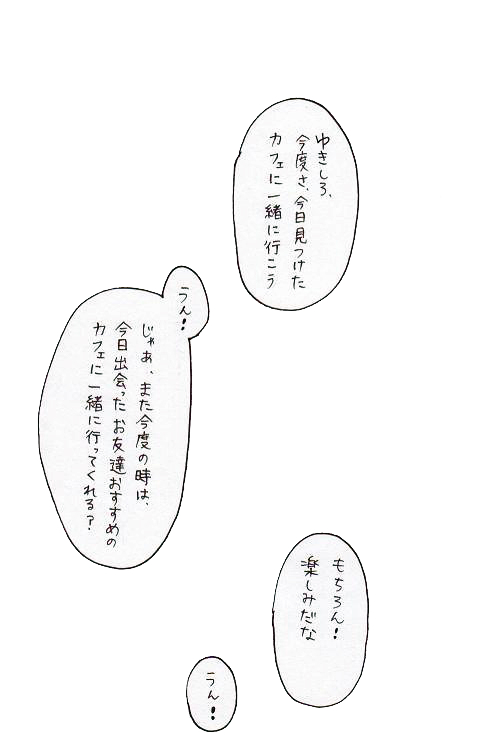 ゆきしろ、
今度さ、今日見つけた
カフェに一緒に行こう
うん!
じゃあ、また今度の時は、
今日出会ったお友達おすすめの
カフェに一緒に行ってくれる?
もちろん!
楽しみだな
うん!